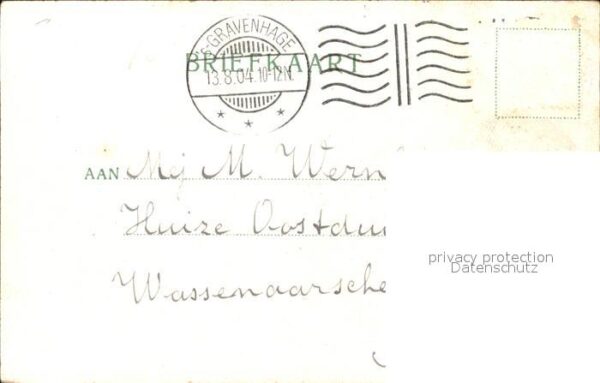 'S GRAVENHAGE
BRIEFKAART
13.8.04.10-12N.
AAN Mej M. Wern
Huize Oostdui
Wassenaarsche
privacy protection
Datenschutz